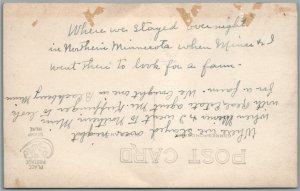 Where we stayed over night
in Northern Minnesota when Miner & I
went there to look for a farm.
Where we stayed over night
when Miner & I went to Northern Minn
with Real Estate agent Mr. to look
for a farm. We bought one in Blackberry Minn
POST CARD
PLACE
POSTAGE
STAMP
HERE